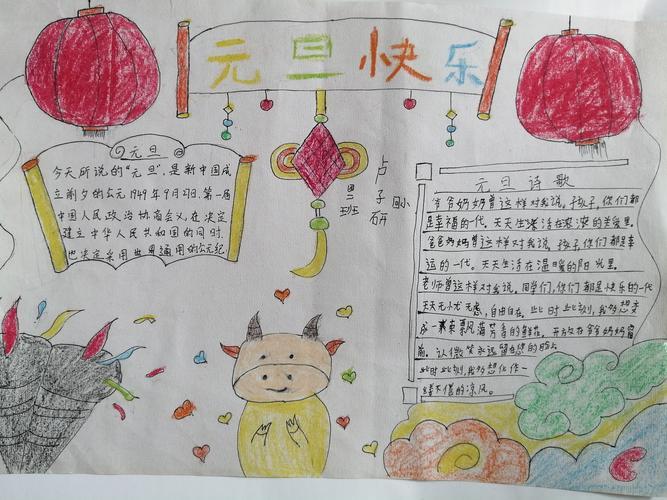 元旦快乐
元旦
今天所说的“元旦”,是新中国成
立前夕的公元1949年9月27日,第一届
中国人民政治协商会议,在决定
建立中华人民共和国的同时,
也决定采用世界通用的公元纪
班
卢子研
元旦诗歌
爷爷奶奶曾这样对我说,孩子,你们都
是幸福的一代,天天生活在浓浓的关爱里。
爸爸妈妈曾这样对我说,孩子你们都是幸
运的一代。天天生活在温暖的阳光里。
老师曾这样对我说,同学们,你们都是快乐的一代
天天无忧无虑,自由自在。此时此刻,我多想变
成一束束飘荡芳香的鲜花,开放在爷爷奶奶窗
前。让微笑永远留在您的
此时此刻,我多想化作一
缕不倦的凉风。